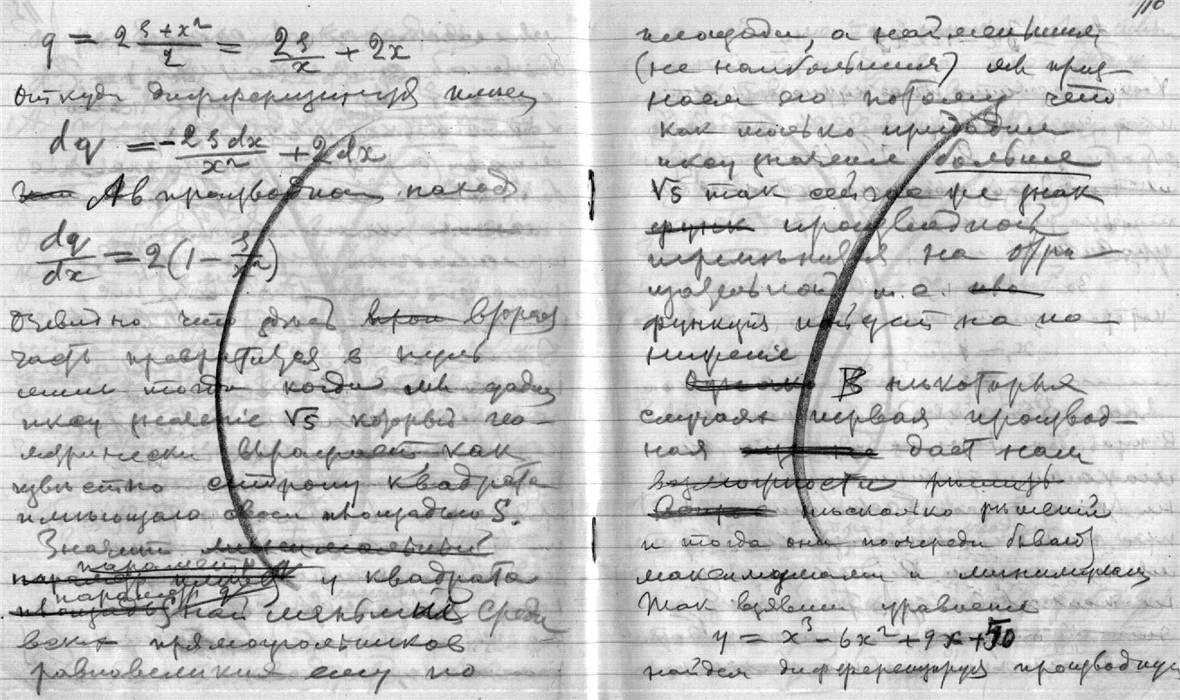 q = 2 (S + x²)/x = 2S/x + 2x
откуда дифференцируя имеем
dq = - 2S dx/x² + 2 dx
А в производная наход
dq/dx = 2(1 - S/x²)
очевидно что здесь вторая
часть превратится в нуль
лишь тогда когда мы дадим
иксу значенiе √S который гео-
метрически выражает как
извѣстно сторону квадрата
имѣющаго своей площадью S.
Значит
параметр
параметр q у квадрата
наименьший среди
всех прямоугольников
равновеликих ему по
110
площади, а наименьшим
(не наибольшим) мы приз-
наем его потому что
как только придадим
иксу значенiе больше
√S так сейчас же знак
функ производной
перемѣнится на отри-
цательной т.е.
функция пойдет на по-
нижение
Однако В нѣкоторых
случаях первая производ-
ная дает нам
возможности рѣшить
нѣсколько рѣшенiй
и тогда они поочереди бывают
максимумами и минимумами
Так взявши уравнение
y = x³ - 6x² + 9x + 10
найдем дифференцируя производную